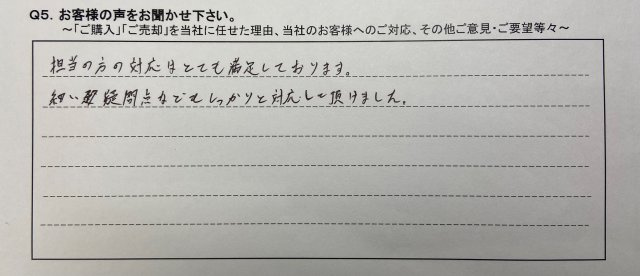 Q5. お客様の声をお聞かせ下さい。
～「ご購入」「ご売却」を当社に任せた理由、当社のお客様へのご対応、その他ご意見・ご要望等々～
担当の方の対応はとても満足しております。
細い疑問点などもしっかりと対応して頂けました。